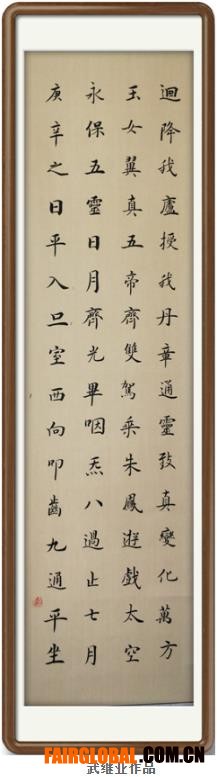 迴降我廬授我丹章通靈致真變化萬方
玉女翼真五帝齊雙駕乘朱鳳遊戲太空
永保五靈日月齊光畢咽炁八過止七月
庚辛之日平入旦室西向叩齒九通平坐
武继业作品
FAIRGLOBAL.COM.CN